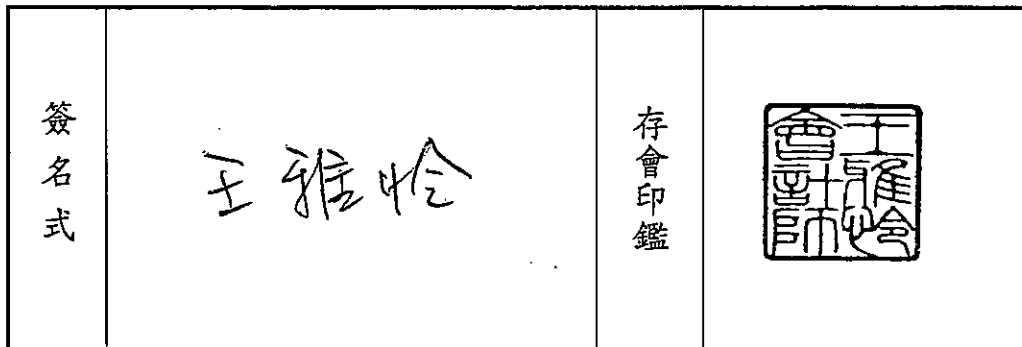 簽名式
王雅怜
存會印鑑
王雅怜
會計師